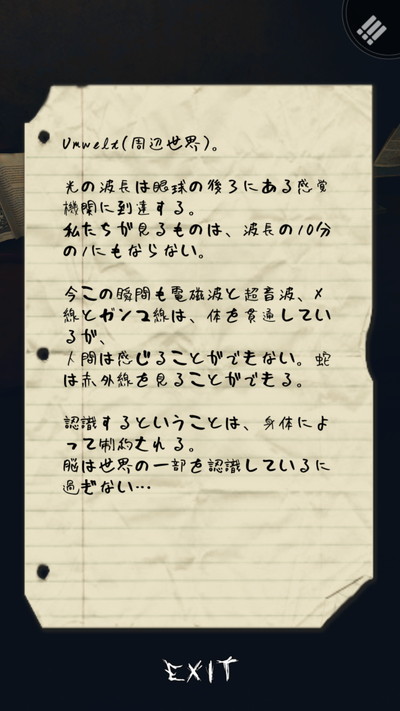 Umwelt(周辺世界)。
光の波長は眼球の後ろにある感覚
機関に到達する。
私たちが見るものは、波長の10分
の1にもならない。
今この瞬間も電磁波と超音波、X
線とガンマ線は、体を貫通してい
るが、
人間は感じることができない。蛇
は赤外線を見ることができる。
認識するということは、身体によ
って制約される。
脳は世界の一部を認識しているに
過ぎない…
EXIT